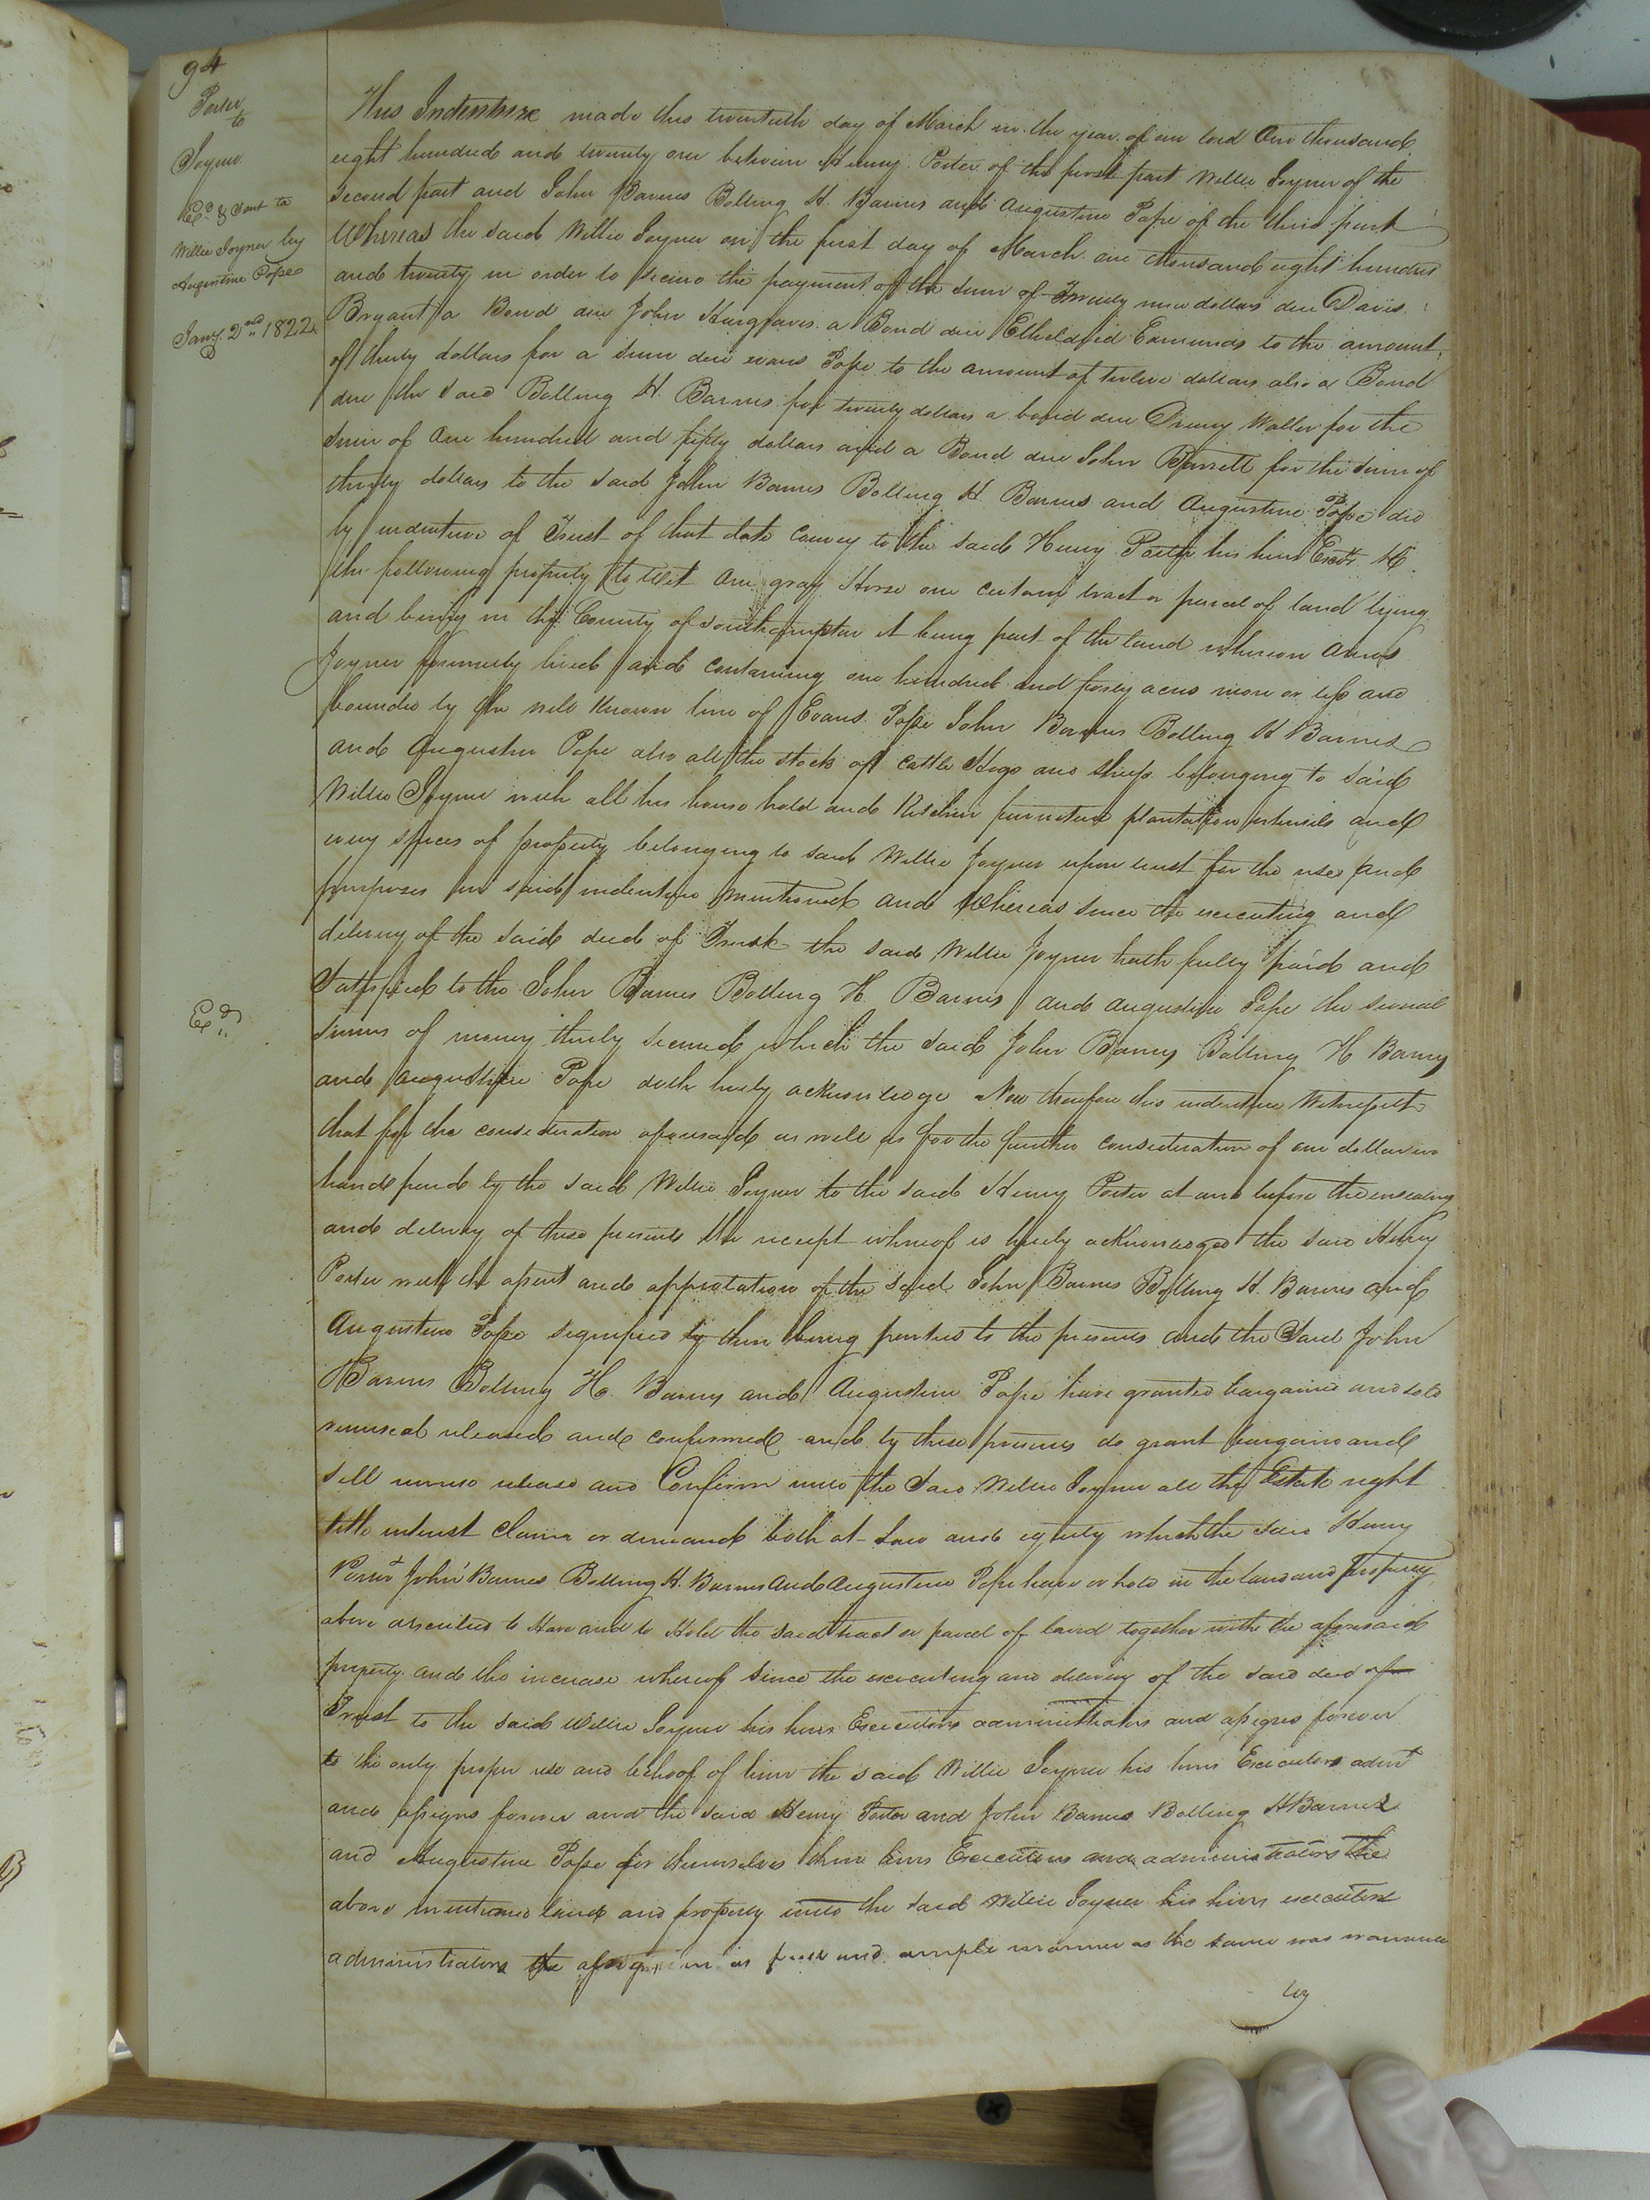 94
Porter
to
Joyner
Exd. & Sent to
Willie Joyner by
Augustine Pope
Jany. 2nd 1822
This Indenture made this twentieth day of March in the year of our lord One thousand
eight hundred and twenty one between Henry Porter of the first part Willie Joyner of the
second part and John Barnes Bolling H. Barnes and Augustine Pope of the third part
Whereas the said Willie Joyner on the first day of March one thousand eight hundred
and twenty in order to secure the payment of the sum of Twenty nine dollars due Davis
Bryant a Bond due John Hargraves a Bond due Etheldred Edmunds to the amount
of thirty dollars for a sum due evans Pope to the amount of twelve dollars also a Bond
due the said Bolling H. Barnes for twenty dollars a bond due Drewry Waller for the
sum of One hundred and fifty dollars and a Bond due John Barrett for the sum of
thirty dollars to the said John Barnes Bolling H Barnes and Augustine Pope did
by indenture of Trust of that date convey to the said Henry Porter his heirs Exors &c
the following property to Wit One gray Horse one certain tract or parcel of land lying
and being in the County of Southampton it being part of the land whereon Amos
Joyner formerly lived and containing one hundred and forty acres more or less and
bounded by the well known line of Evans Pope John Barnes Bolling H Barnes
and Augustine Pope also all the stock of cattle Hogs and sheep belonging to said
Willie Joyner with all his house hold and Kitchin furniture plantation utensils and
every spices of property belonging to said Willie Joyner upon trust for the uses and
purposes in said indenture mentioned and Whereas since the executing and
delivery of the said deed of Trust the said Willie Joyner hath fully paid and
Satisfied to the John Barnes Bolling H. Barnes and augustine Pope the several
Exd.
sums of money thereby secured which the said John Barnes Bolling H Barnes
and Augustine Pope doth hereby acknowledge Now therefore this indenture Witnesseth
that for the consideration aforesaid as well as for the further consideration of one dollar in
hand paid by the said Willie Joyner to the said Henry Porter at and before the ensealing
and delivery of these presents the receipt whereof is hereby acknowledged the said Henry
Porter with the assent and approbation of the said John Barnes Bolling H. Barnes and
Augustine Pope signified by their being parties to the presents and the Said John
Barnes Bolling H. Barnes and Augustine Pope have granted bargained and sold
remised released and confirmed and by these presents do grant bargain and
sell remise release and Confirm unto the Said Willie Joyner all the Estate right
title interest claim or demand both at law and equity which the said Henry
Porter John Barnes Bolling H. Barnes and Augustine Pope have or hold in the land and property
above described to Have and to Hold the said tract or parcel of land together with the aforesaid
property and the increase whereof since the executing and delivery of the said deed of
Trust to the said Willie Joyner his heirs Executors administrators and assigns forever
to the only proper use and behoof of him the said Willie Joyner his heirs Executors admrs
and assigns forever and the said Henry Porter and John Barnes Bolling H Barnes
and Augustine Pope for themselves their heirs Executors and administrators the
above mentioned land and property unto the said Willie Joyner his heirs executors
administrators the in as full and ample manner as the same was
by